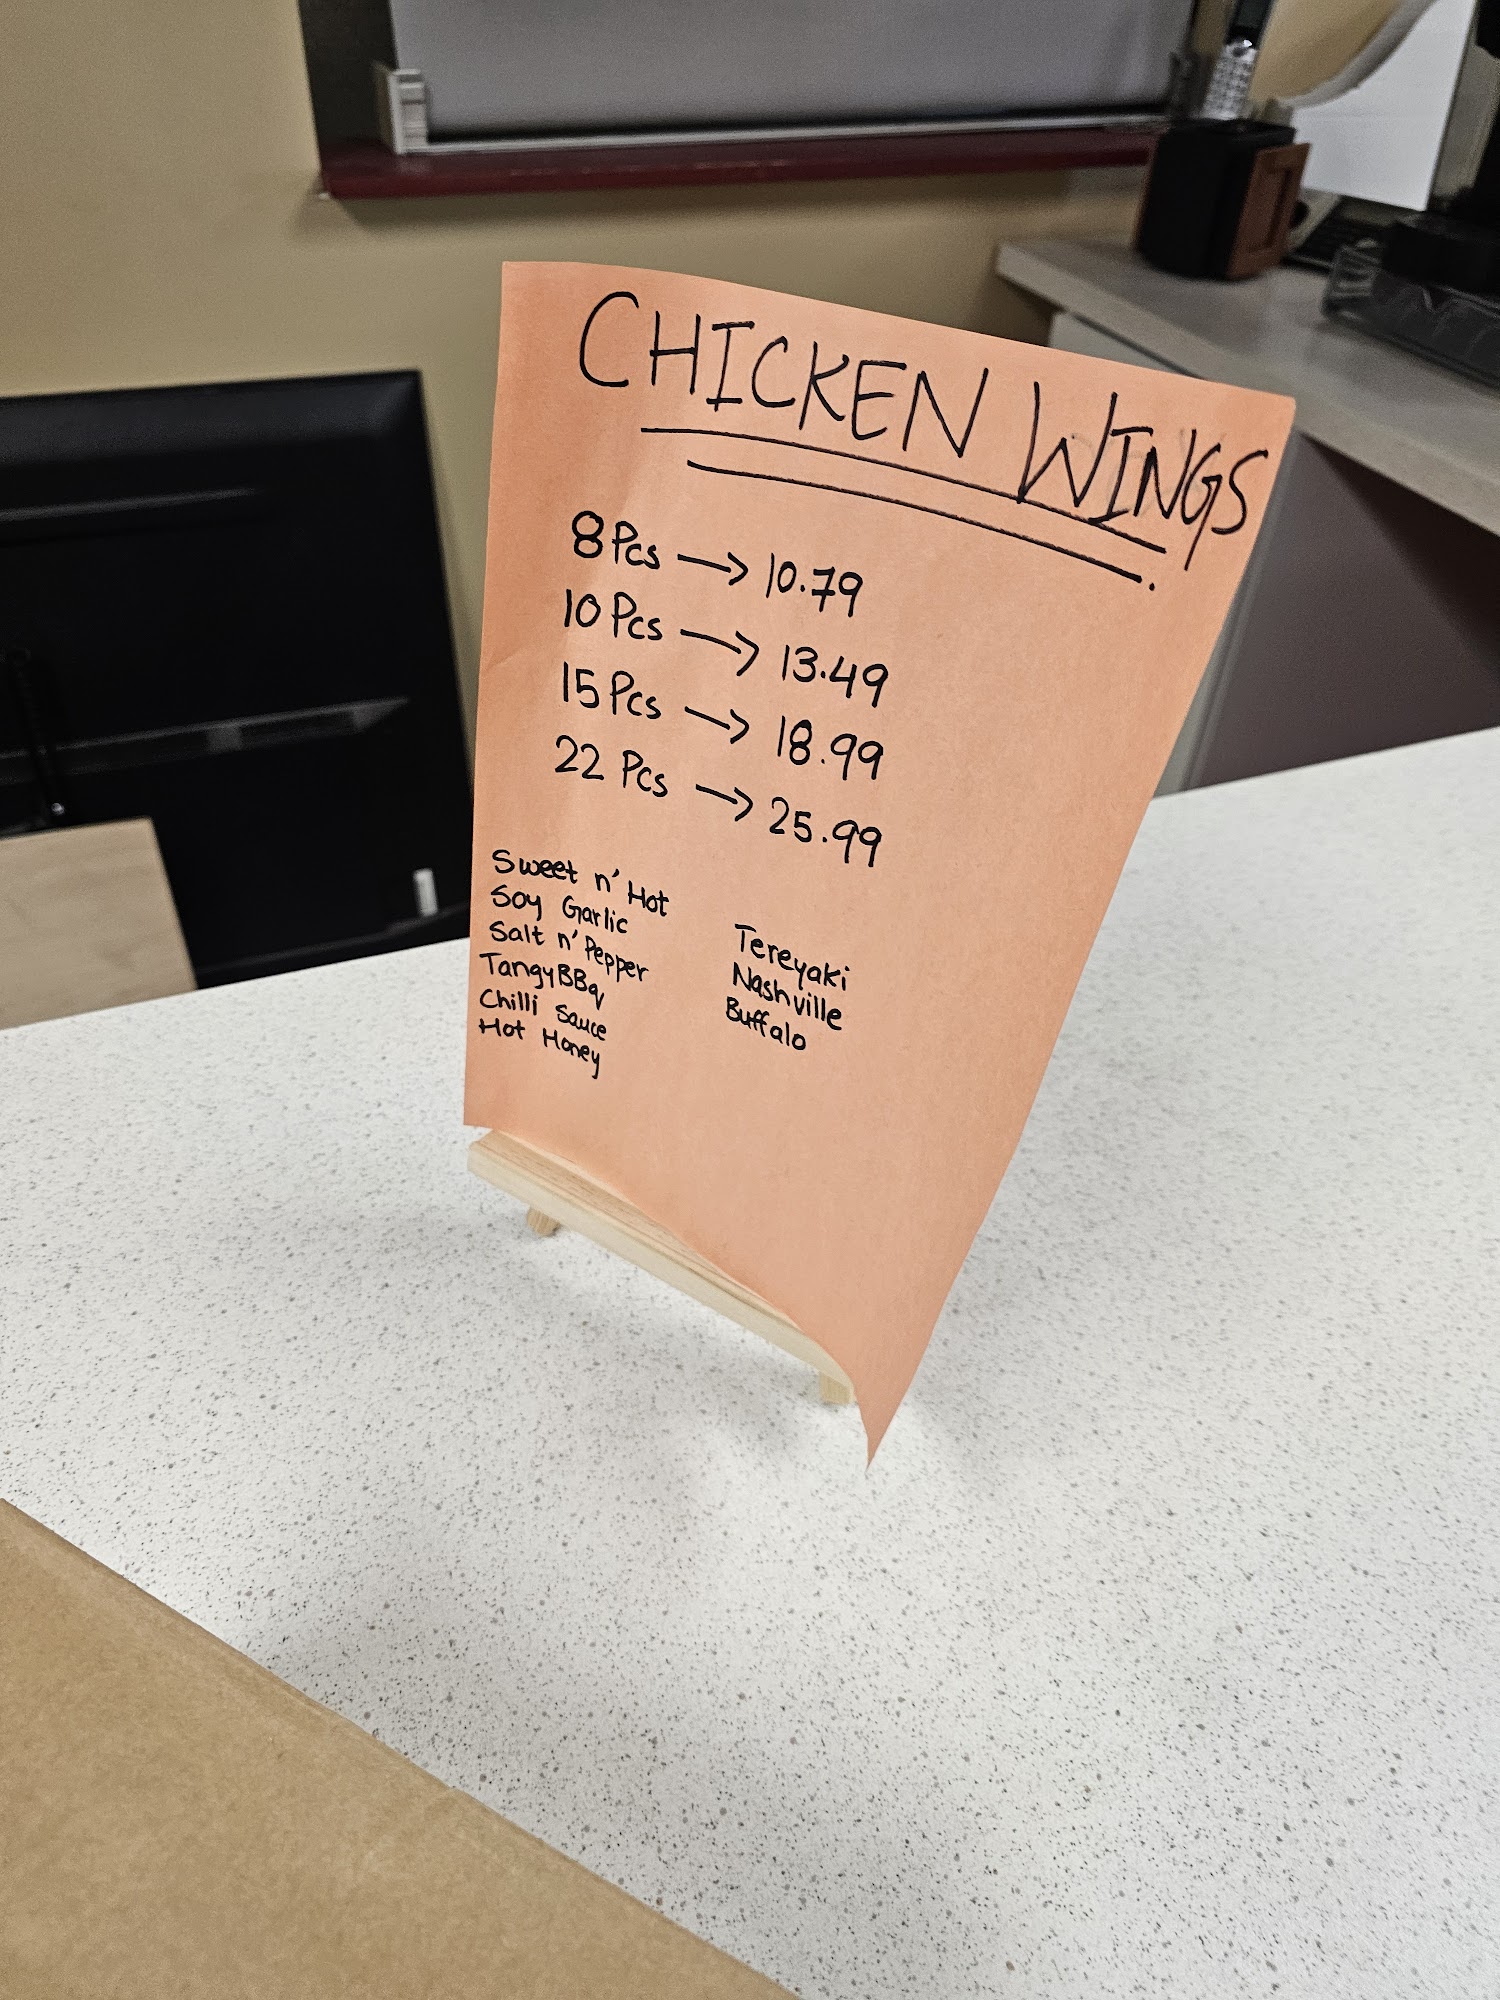 CHICKEN WINGS
8 Pcs → 10.79
10 Pcs → 13.49
15 Pcs → 18.99
22 Pcs → 25.99
Sweet n' Hot
Soy Garlic
Salt n' Pepper
Tangy BBq
Chilli Sauce
Hot Honey
Tereyaki
Nashville
Buffalo